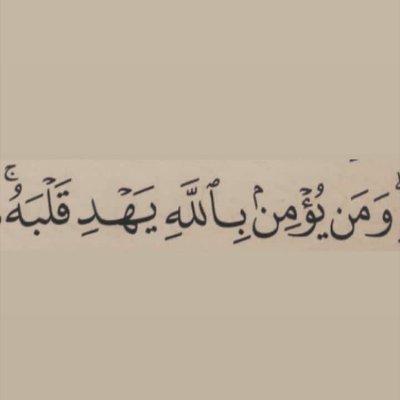 وَمَن يُؤۡمِنۢ بِٱللَّهِ يَهۡدِ قَلۡبَهُۥۚ